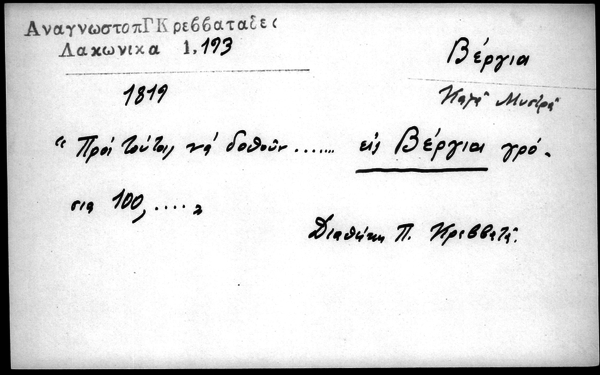 ΑναγνωστοπΓΚρεββαταδες
Λακωνικα 1,193
Βέργια
1819
Καζᾶ Μυστρᾶ
"Πρὸς τούτοις νὰ δοθοῦν ....... εἰς Βέργια γρό-
σια 100,....„
Διαθήκη Π. Κρεββατᾶ.